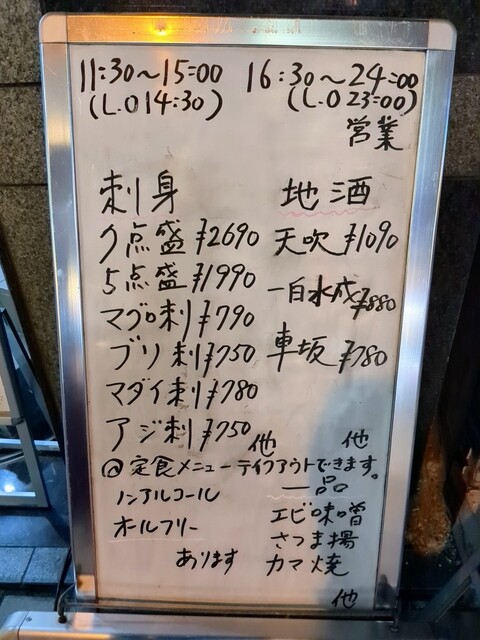 11:30～15:00　16:30～24:00
(L.O 14:30)　(L.O 23:00)
営業
刺身
7点盛 ¥2690
5点盛 ¥1990
マグロ刺 ¥790
ブリ刺 ¥750
マダイ刺 ¥780
アジ刺 ¥750
他
地酒
天吹 ¥1090
一白水成 ¥880
車坂 ¥780
他
@定食メニューテイクアウトできます。
ノンアルコール
オールフリー
あります
一品
エビ味噌
さつま揚
カマ焼
他